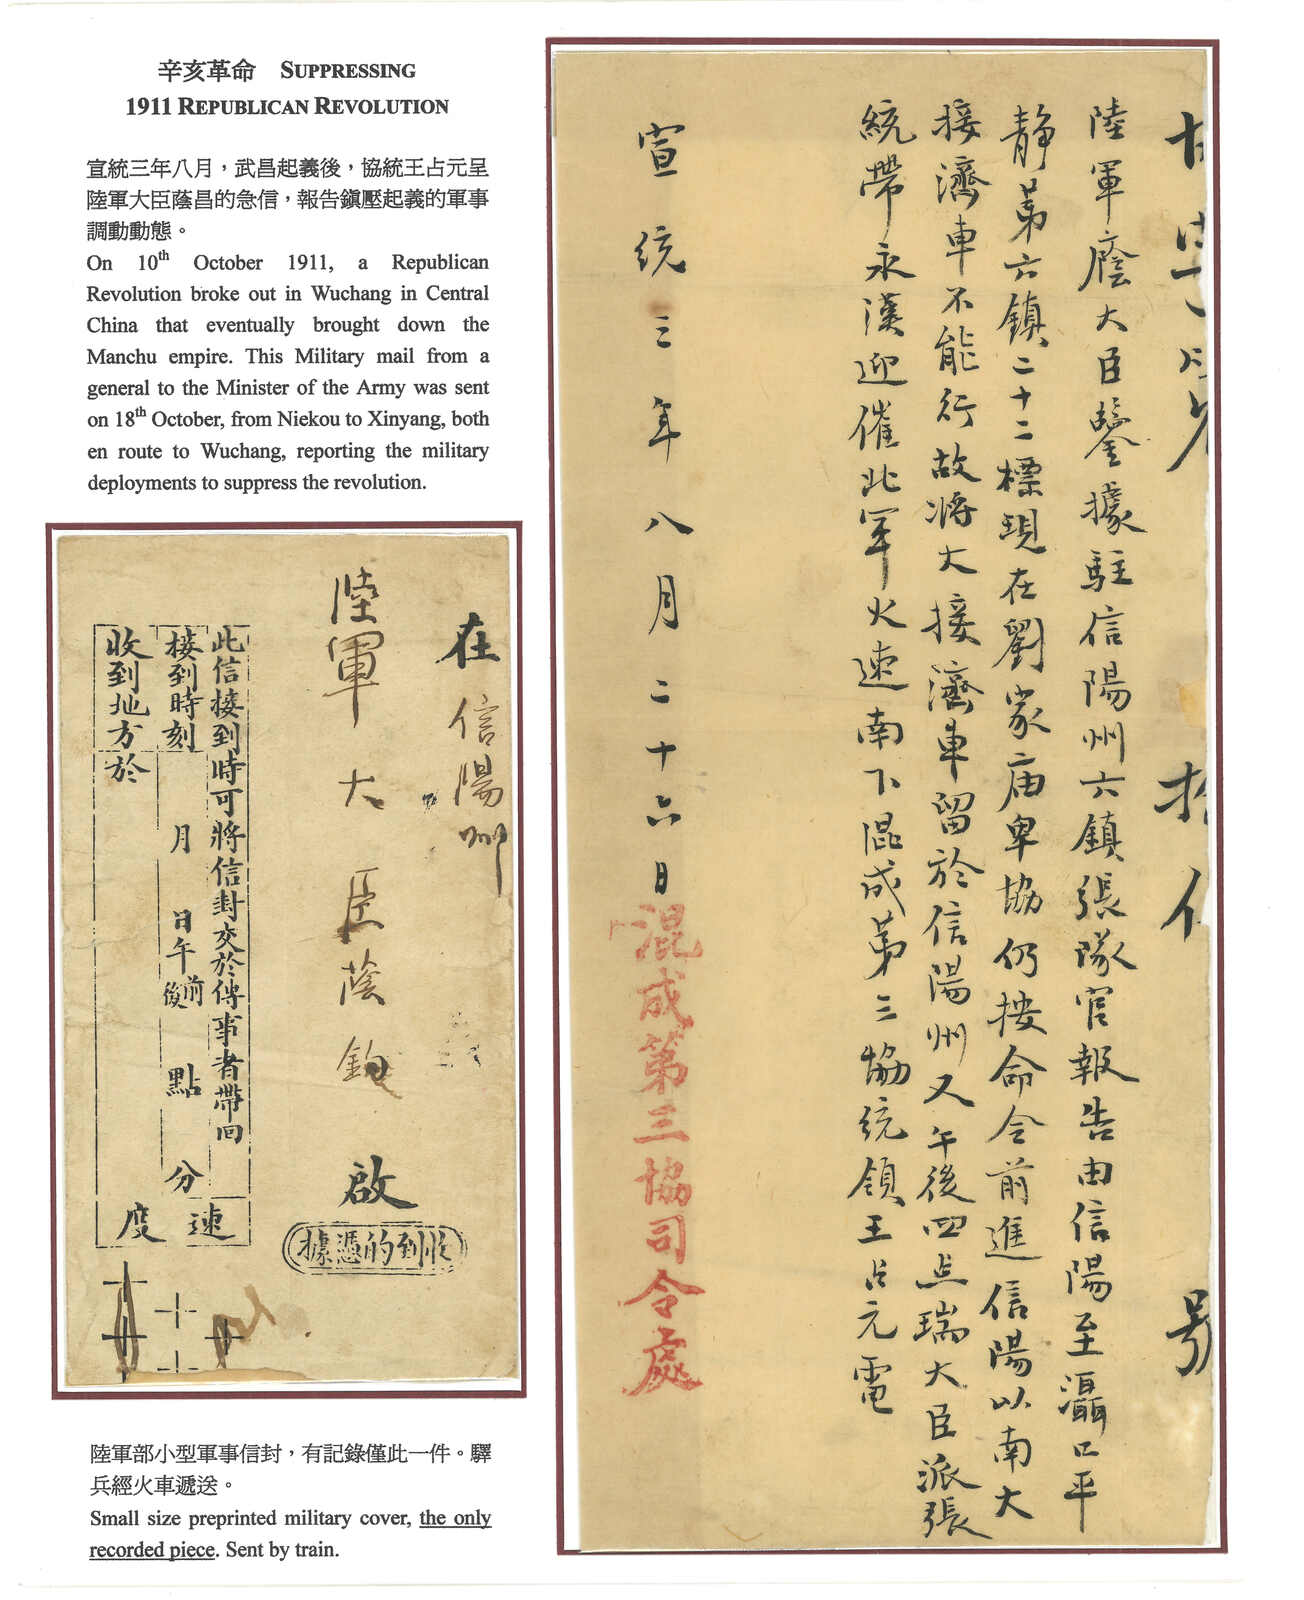 辛亥革命 SUPPRESSING
1911 REPUBLICAN REVOLUTION
宣統三年八月，武昌起義後，協統王占元呈
陸軍大臣蔭昌的急信，報告鎮壓起義的軍事
調動動態。
On 10th October 1911, a Republican
Revolution broke out in Wuchang in Central
China that eventually brought down the
Manchu empire. This Military mail from a
general to the Minister of the Army was sent
on 18th October, from Niekou to Xinyang, both
en route to Wuchang, reporting the military
deployments to suppress the revolution.
在信陽州
陸軍大臣蔭 啟
收到的憑據
此信接到時可將信封交於傳事者帶回
接到時刻 月 日午前後 點 分
收到地方於
速度
陸軍部小型軍事信封，有記錄僅此一件。驛
兵經火車遞送。
Small size preprinted military cover, the only
recorded piece. Sent by train.
號
陸軍廕大臣鑒據駐信陽州六鎮張隊官報告由信陽至灄口平
靜第六鎮二十二標現在劉家庙卑協仍按命令前進信陽以南大
接濟車不能行故將大接濟車留於信陽州又午後四点瑞大臣派張
統帶永漢迎催此軍火速南下混成第三協統領王占元電
宣統三年八月二十六日
混成第三協司令處